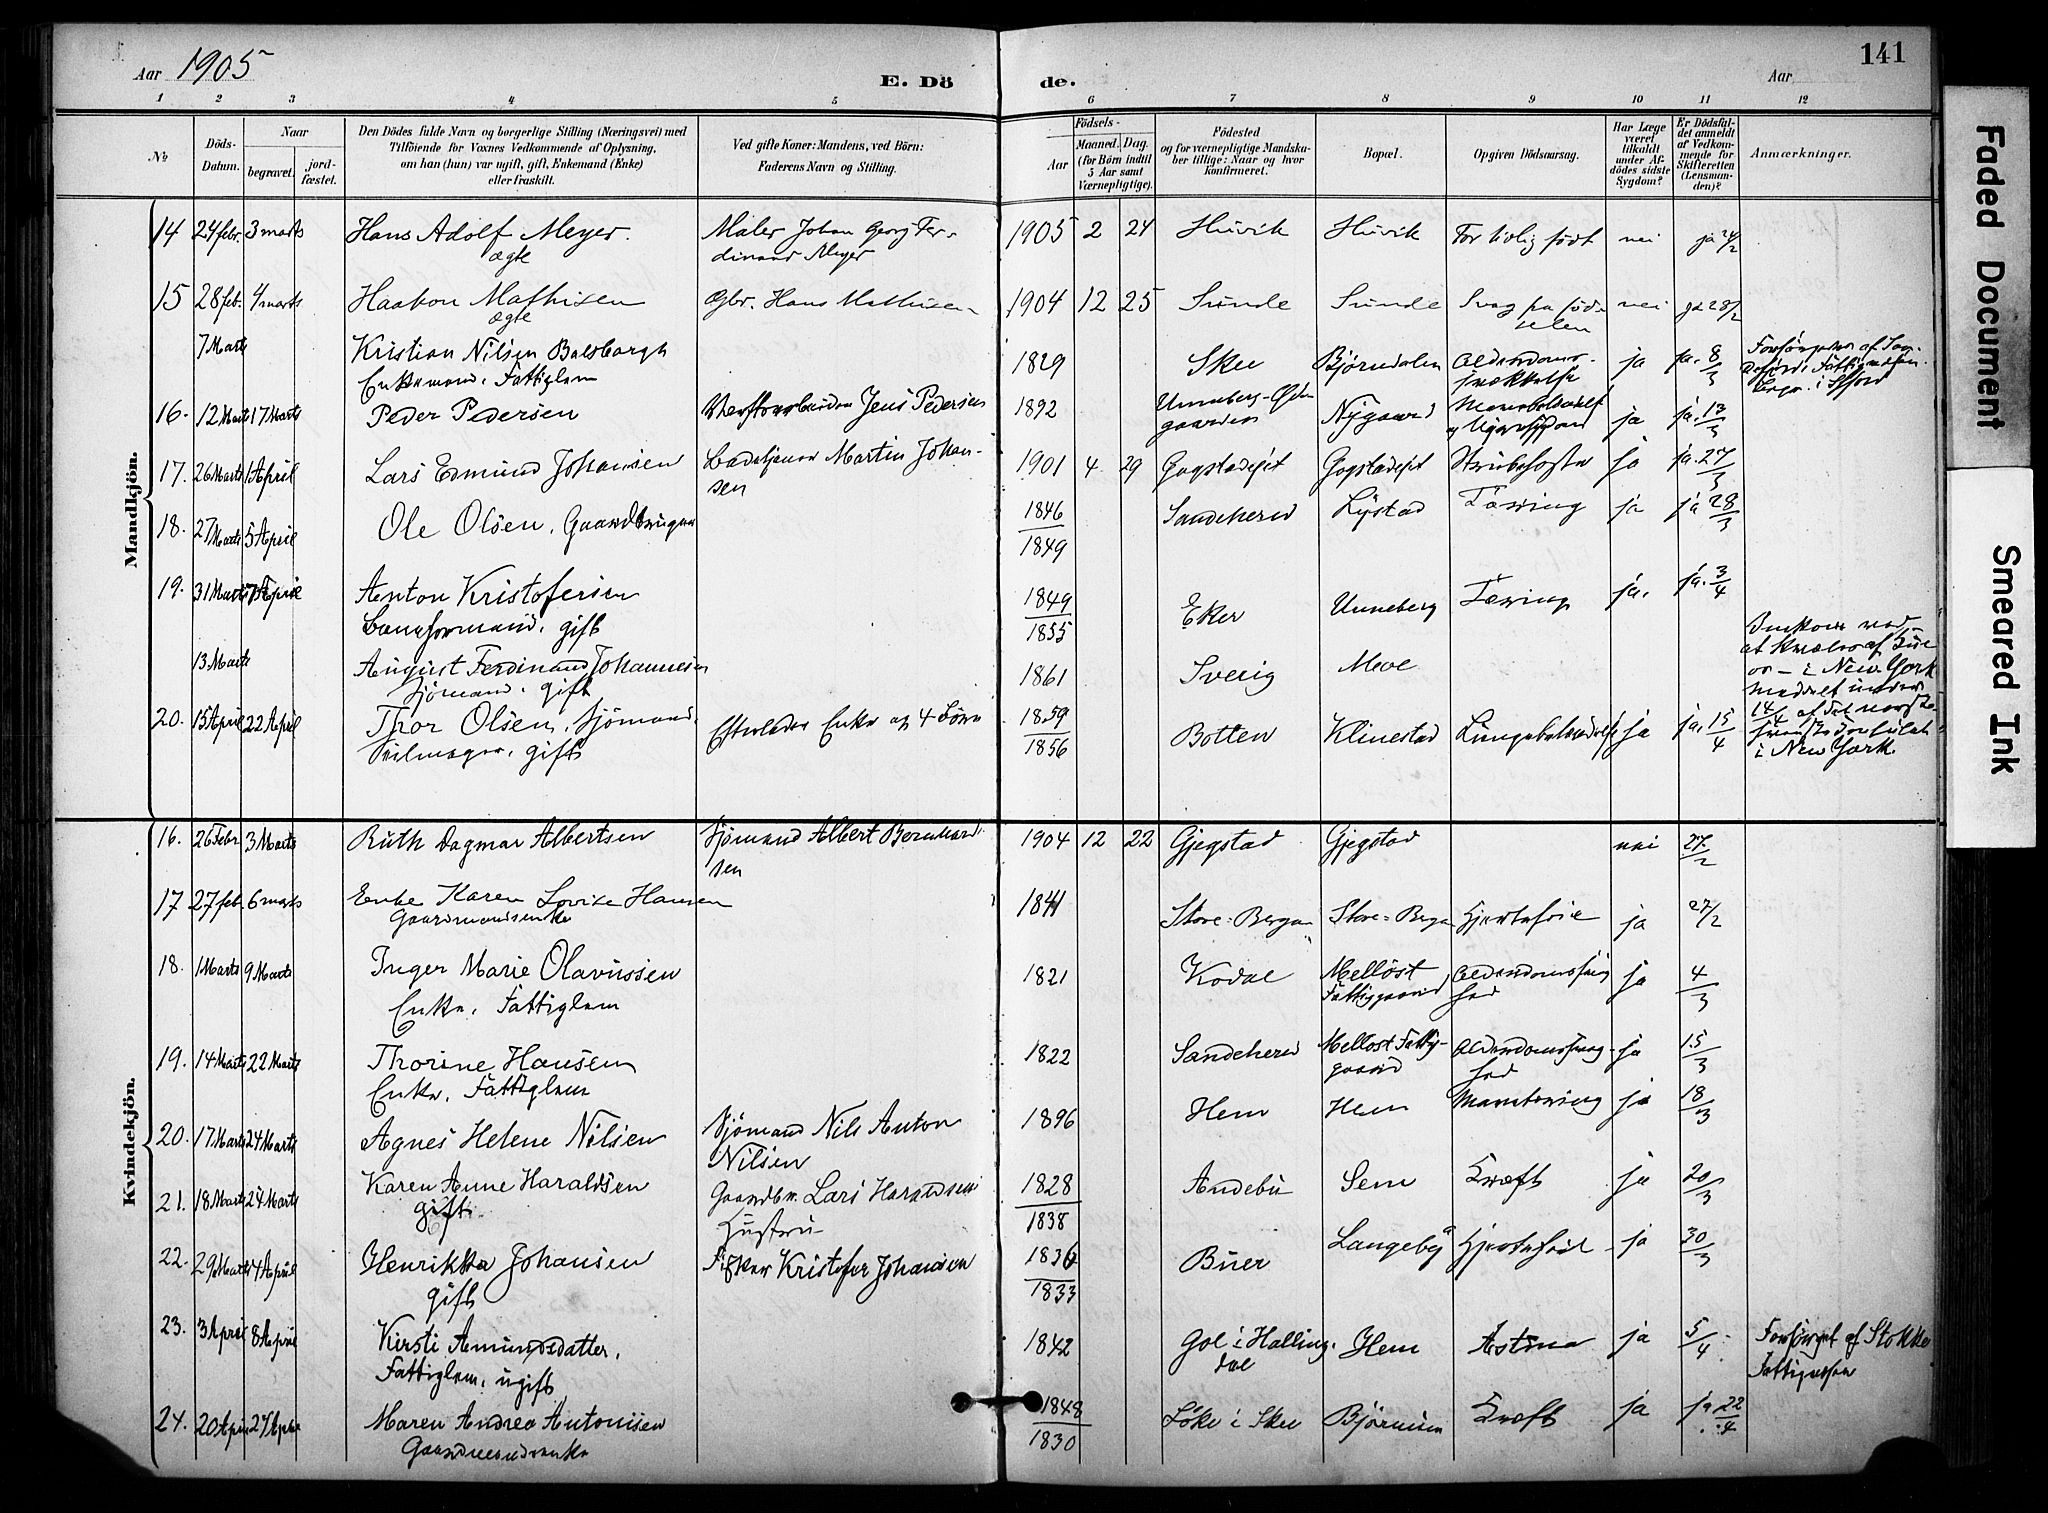 Aar 1905 E. Döde. Aar 141
1 2 3 4 5 6 7 8 9 10 11 12
№ Döds-Datum. Naar begravet. jordfæstet. Den Dödes fulde Navn og borgerlige Stilling (Næringsvei) med Tilföiende for Voxnes Vedkommende af Oplysning, om han (hun) var ugift, gift, Enkemand (Enke) eller fraskilt. Ved gifte Koner: Mandens, ved Börn: Faderens Navn og Stilling. Födsels- Aar Maaned. Dag. (for Börn indtil 5 Aar samt Værnepligtige). Födested og for værnepligtige Mandskaber tillige: Naar og hvor konfirmeret. Bopæl. Opgiven Dödsaarsag. Har Læge været tilkaldt under Afdödes sidste Sygdom? Er Dödsfaldet anmeldt af Vedkommende for Skifteretten (Lensmanden)? Anmærkninger.
Mandkjön.
14 24 febr. 3 marts Hans Adolf Meyer. Maler Johan Georg Fer- 1905 2 24 Huvik Huvik For tidlig født nei ja 24/2
ægte dinand Meyer
15 28 feb. 4 marts Haakon Mathisen Gbr. Hans Mathisen 1904 12 25 Sunde Sunde Svag fra fød- nei ja 28/2
ægte selen
7 Marts Kristian Nilsen 1829 Skee Bjørndalen Alderdoms- ja ja. 8/3
Enkemand. Fattiglem svækkelse
16. 12 Marts 17 Marts Peder Pedersen Jens Pedersen 1892 Unneberg- Nygaard ja ja. 13/3
gaarden
17. 26 Marts 1 April Lars Edmund Johansen Martin Johan- 1901 4 29 Gogstadejet Gogstadejet Strubehoste ja ja. 27/3
sen
18. 27 Marts 5 April Ole Olsen, Gaardbruger 1846 Sandeherred Lystad Tæring ja ja 28/3
1849
19. 31 Marts 7 April Anton Kristofersen 1849 Eker Unneberg Tæring ja. ja. 3/4
Baneformand. gift 1855
13 Marts August Ferdinand Johannesen 1861 Sverig Moe i New York
Sjømand. gift
20. 15 April 22 April Thor Olsen, Sjømand. Efterlader Enke og 4 Børn 1859 Botten Klinestad Lungebetændelse ja ja. 15/4 14/4 af det norske
Seilmager, gift 1856 i New York.
Kvindekjön.
16. 26 Febr 3 Marts Ruth Dagmar Albertsen Sjømand Albert Bernhard- 1904 12 22 Gjegstad Gjegstad nei 27/2
sen
17 27 feb. 6 marts Enke Karen Lovise Hansen 1841 Store-Bergan Store-Bergan Hjertefeil ja 27/2
Gaardmandsenke
18. 1 Marts 9 Marts Inger Marie Olavussen 1821 Kodal Melløst Alderdomssvag- ja 4/3
Enke, Fattiglem Fattiggaard hed
19. 14 Marts 22 Marts Thorine Hansen 1822 Sandeherred Melløst Fattig- Alderdomssvag- ja 15/3
Enke, Fattiglem gaard hed
20. 17 Marts 24 Marts Agnes Helene Nilsen Sjømand Nils Anton 1896 Hem Hem Mavetæring ja 18/3
Nilsen
21. 18 Marts 24 Marts Karen Anne Haraldsen Gaardbr. Lars Haraldsen 1828 Andebu Sem Kræft ja 20/3
gift Hustru 1838
22. 29 Marts 4 April Henrikka Johansen Fisker Kristofer Johansen 1836 Buer Langeby Hjertefeil ja 30/3
gift 1833
23. 3 April 8 April Kirsti Amundsdatter, 1842 Gol i Halling- Hem Astma ja 5/4 Forsørget af Stokke
Fattiglem, ugift dal Fattigvæsen
24. 20 April 27 April Maren Andrea Antonisen 1848 Løke i Skee Bjørnum Kræft ja ja 22/4
Gaardmandsenke 1830
Faded Document
Smeared Ink